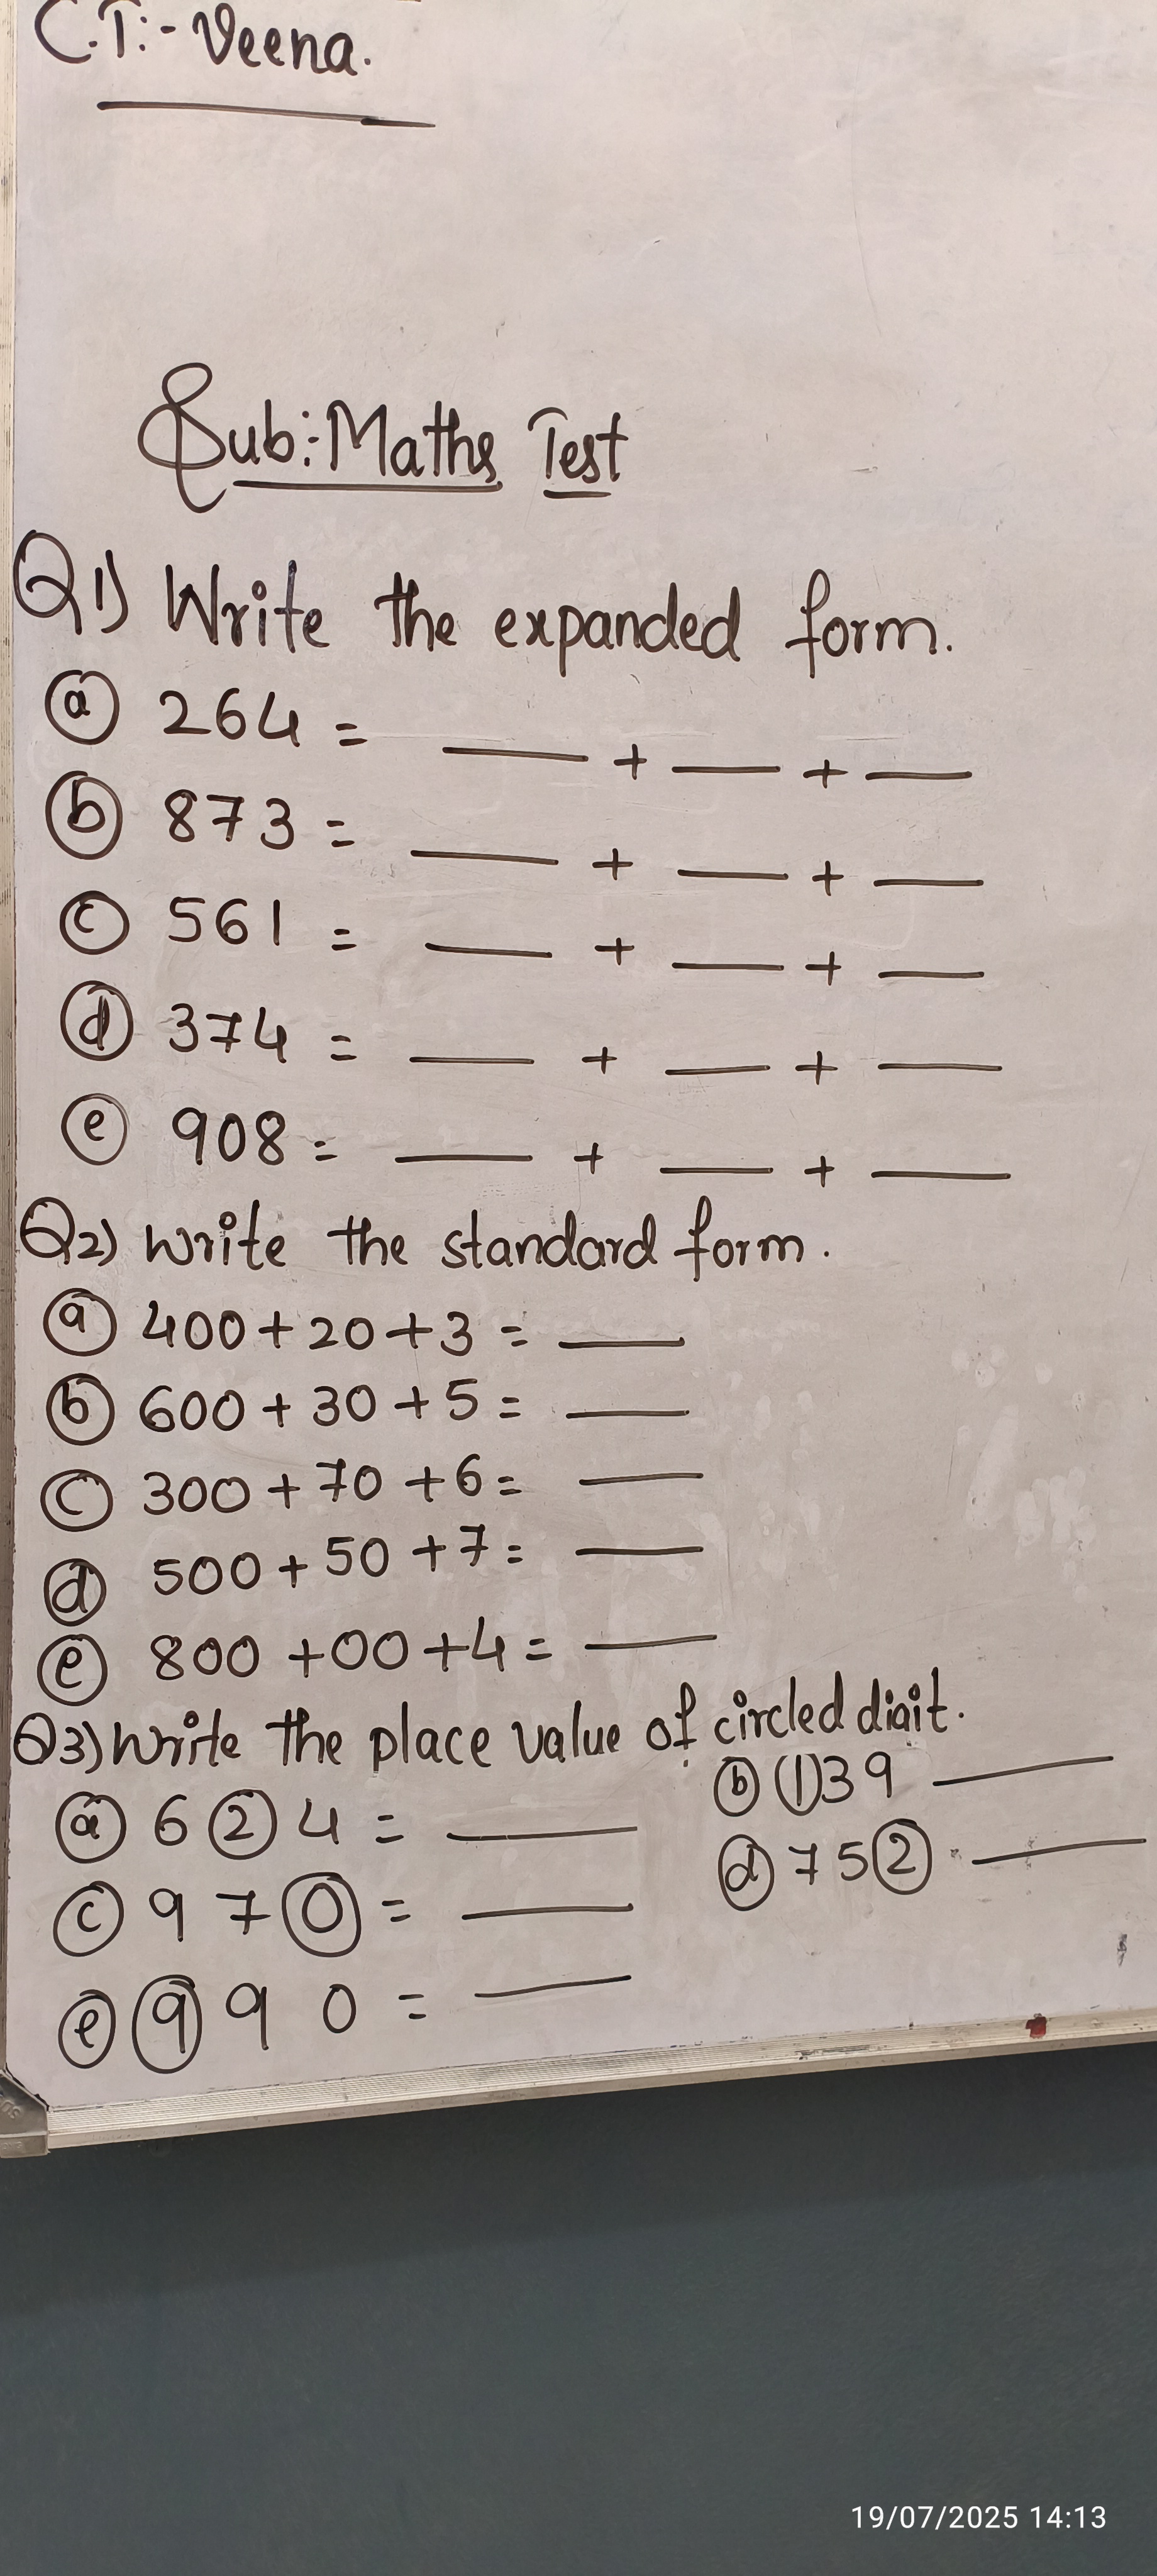 C.T:- Veena.
Sub:- Maths Test
Q1) Write the expanded form.
a 264 = ___ + ___ + ___
b 873 = ___ + ___ + ___
c 561 = ___ + ___ + ___
d 374 = ___ + ___ + ___
e 908 = ___ + ___ + ___
Q2) Write the standard form.
a 400 + 20 + 3 = ___
b 600 + 30 + 5 = ___
c 300 + 70 + 6 = ___
d 500 + 50 + 7 = ___
e 800 + 00 + 4 = ___
Q3) Write the place value of circled digit.
a 6 2 4 = ___ b 139 ___
c 9 7 0 = ___ d 752 ___
e 9 9 0 = ___
19/07/2025 14:13